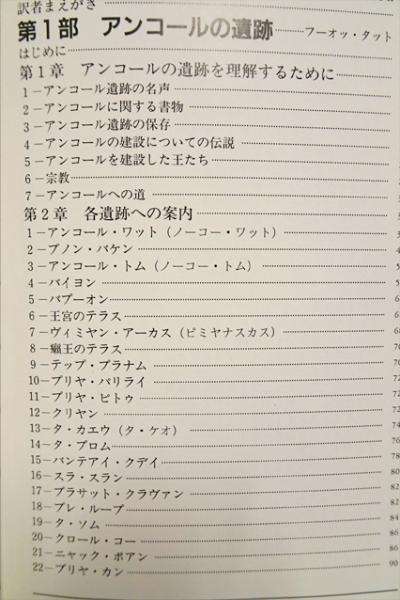 訳者まえがき
第1部 アンコールの遺跡……フーオッ・タット
はじめに
第1章 アンコールの遺跡を理解するために
1－アンコール遺跡の名声
2－アンコールに関する書物
3－アンコール遺跡の保存
4－アンコールの建設についての伝説
5－アンコールを建設した王たち
6－宗教
7－アンコールへの道
第2章 各遺跡への案内
1－アンコール・ワット（ノーコー・ワット）
2－プノン・バケン
3－アンコール・トム（ノーコー・トム）
4－バイヨン
5－バプーオン
6－王宮のテラス
7－ヴィミヤン・アーカス（ピミヤナスカス） 68
8－癩王のテラス 70
9－テップ・プラナム 70
10－プリヤ・パリライ 72
11－プリヤ・ピトゥ 72
12－クリヤン 72
13－タ・カエウ（タ・ケオ） 74
14－タ・プロム 76
15－バンテアイ・クデイ 78
16－スラ・スラン 80
17－プラサット・クラヴァン 82
18－プレ・ループ 82
19－タ・ソム 84
20－クロール・コー 86
21－ニャック・ポアン 86
22－プリヤ・カン 90